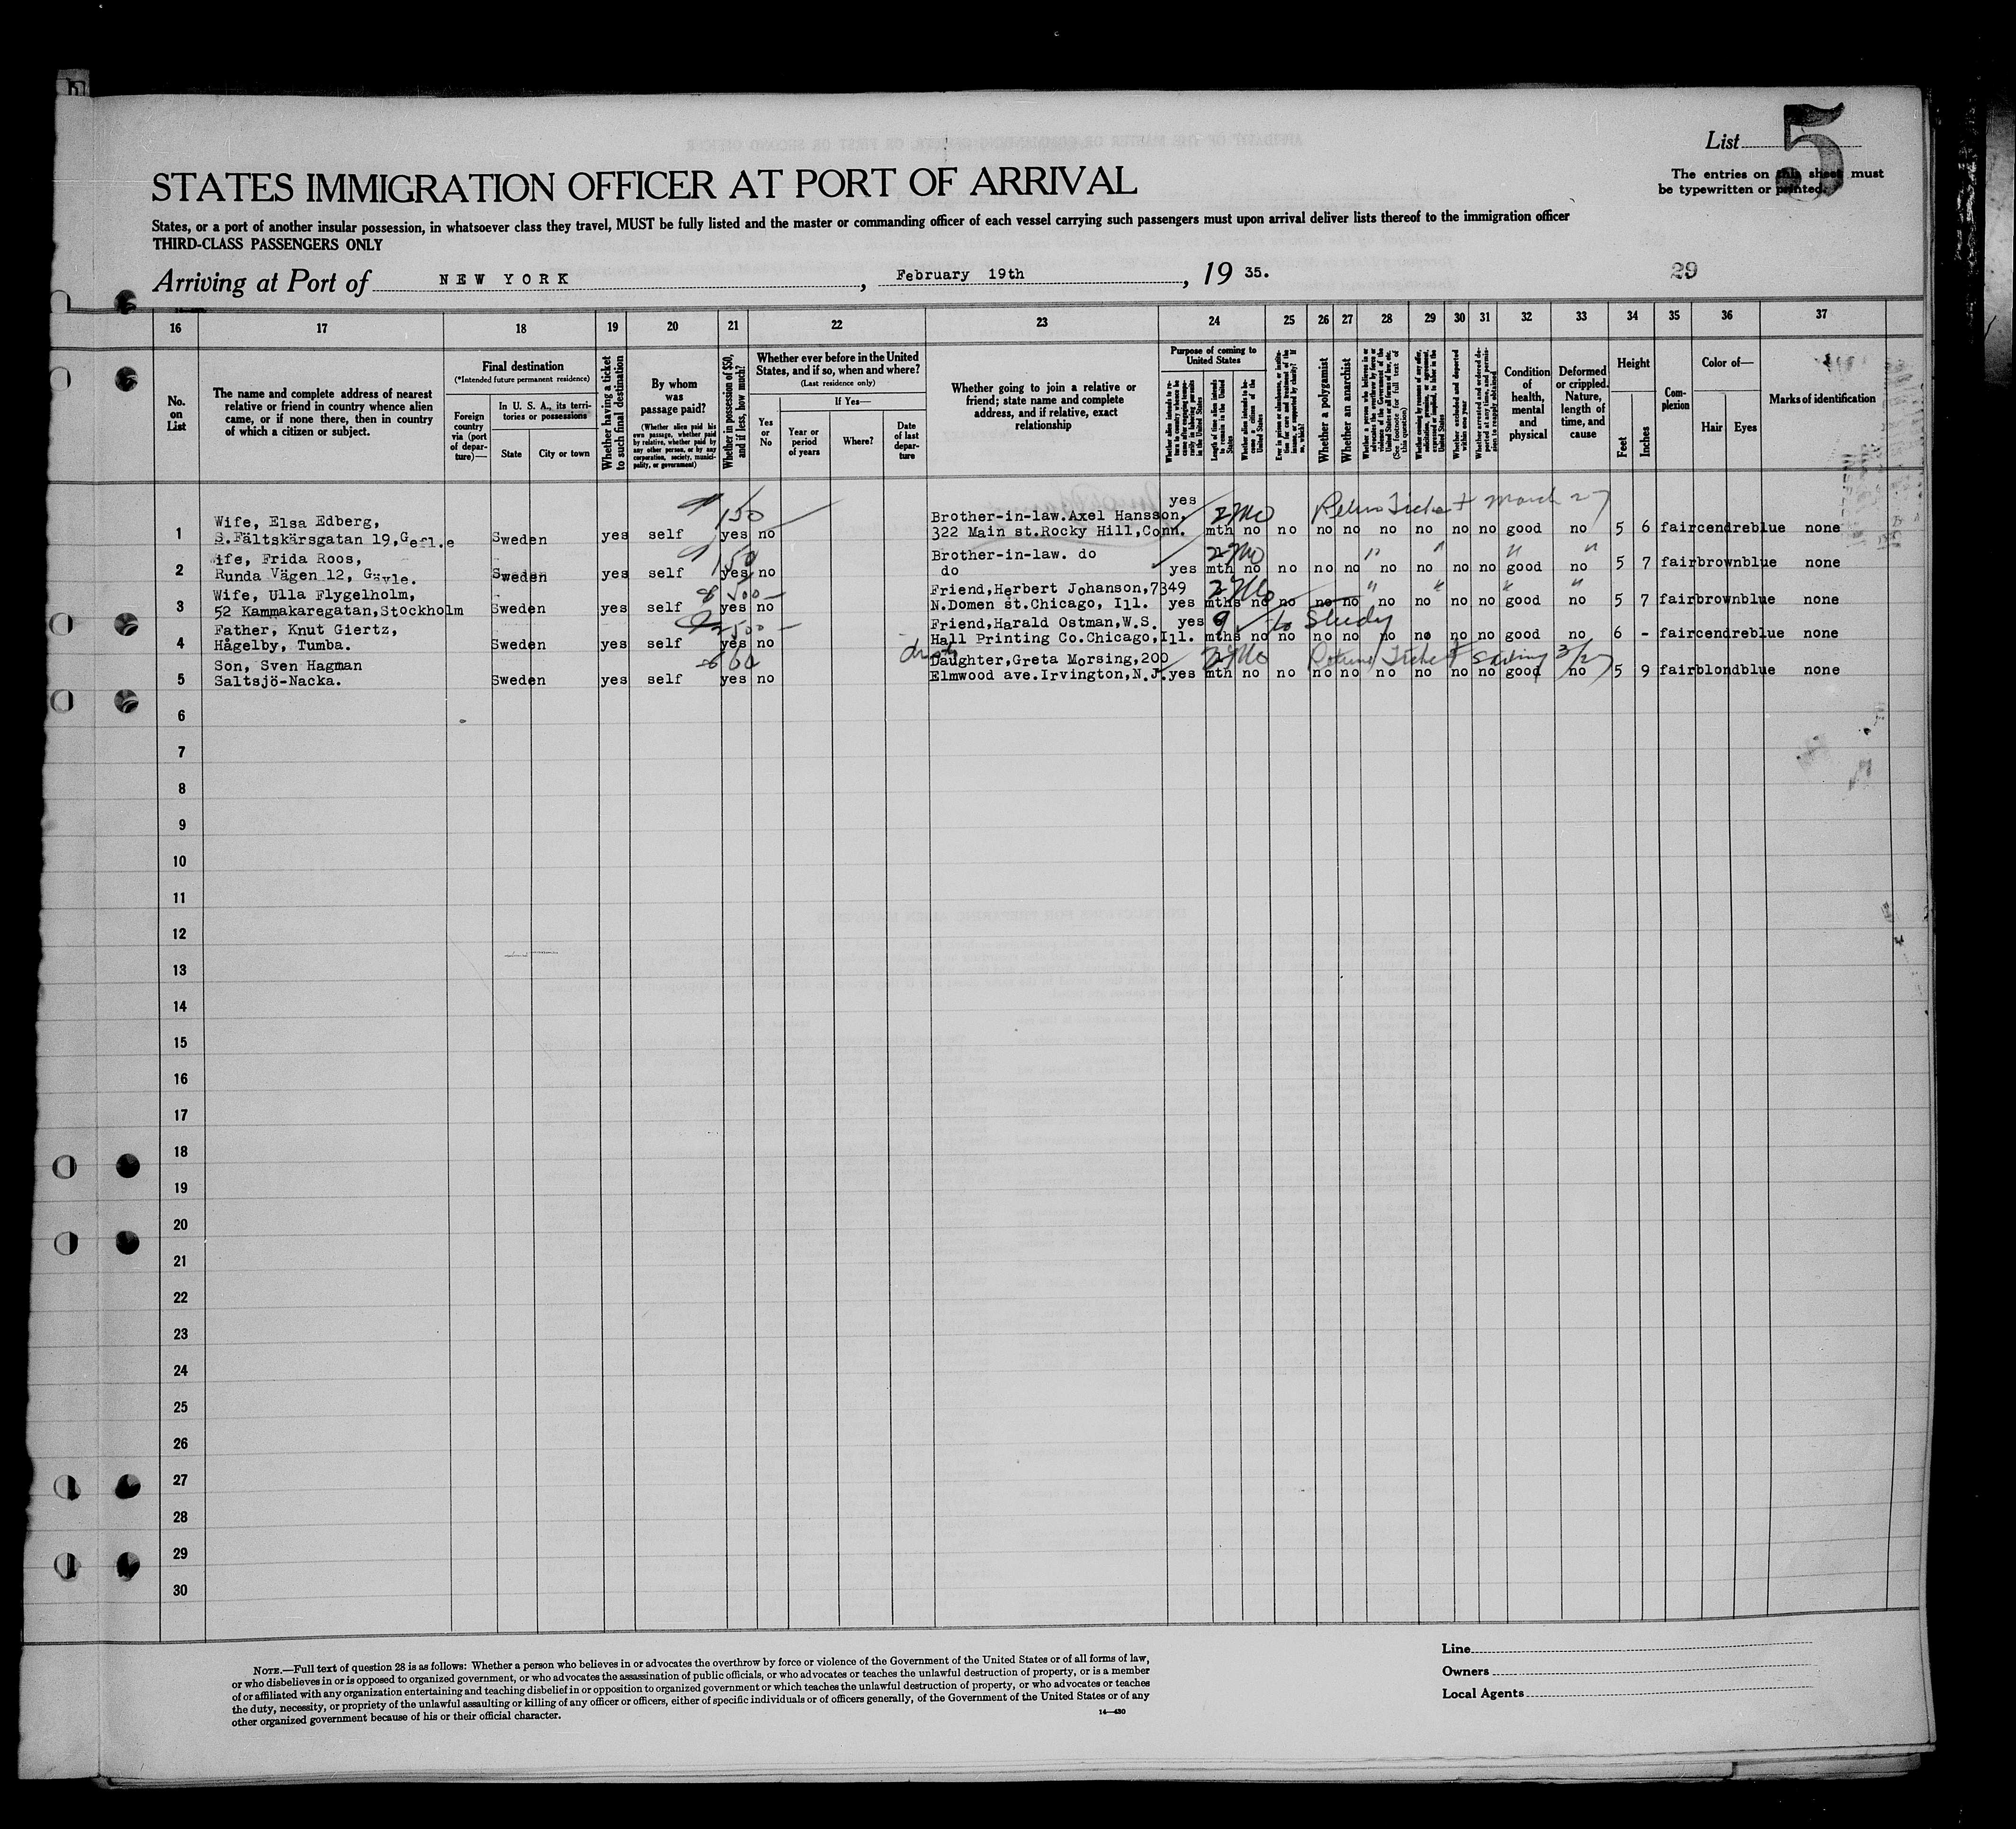 List 5
The entries on this sheet must
be typewritten or printed.
STATES IMMIGRATION OFFICER AT PORT OF ARRIVAL
States, or a port of another insular possession, in whatsoever class they travel, MUST be fully listed and the master or commanding officer of each vessel carrying such passengers must upon arrival deliver lists thereof to the immigration officer
THIRD-CLASS PASSENGERS ONLY
Arriving at Port of NEW YORK, February 19th, 19 35.
29
16 17 18 19 20 21 22 23 24 25 26 27 28 29 30 31 32 33 34 35 36 37
No. on List
The name and complete address of nearest
relative or friend in country whence alien
came, or if none there, then in country
of which a citizen or subject.
Final destination
(*Intended future permanent residence)
Foreign
country
via (port
of depar-
ture)—
In U. S. A., its terri-
tories or possessions
State City or town
Whether having a ticket
to such final destination
By whom
was
passage paid?
(Whether alien paid his
own passage, whether paid
by relative, whether paid by
any other person, or by any
corporation, society, munici-
pality, or government)
Whether in possession of $50,
and if less, how much?
Whether ever before in the United
States, and if so, when and where?
(Last residence only)
Yes
or
No
If Yes—
Year or
period
of years
Where?
Date
of last
depar-
ture
Whether going to join a relative or
friend; state name and complete
address, and if relative, exact
relationship
Purpose of coming to
United States
Length of time alien intends
to remain in the United
States
Whether alien intends to be-
come a citizen of the
United States
Whether a polygamist
Whether an anarchist
(See footnote for full text of
this question)
Whether excluded and deported
within one year
Condition
of
health,
mental
and
physical
Deformed
or crippled.
Nature,
length of
time, and
cause
Height
Feet Inches
Com-
plexion
Color of—
Hair Eyes
Marks of identification
150 yes 2 Mo Return Ticket March 27
Wife, Elsa Edberg, Brother-in-law.Axel Hansson,
1 S.Fältskärsgatan 19,Gefle Sweden yes self yes no 322 Main st.Rocky Hill,Conn. mth no no no no no no no no good no 5 6 fair cendre blue none
Wife, Frida Roos, 150 Brother-in-law. do 2 Mo " " " "
2 Runda Vägen 12, Gävle. Sweden yes self yes no do yes mth no no no no no no no no good no 5 7 fair brown blue none
Wife, Ulla Flygelholm, 500 Friend,Herbert Johanson,7349 2 Mo " " " "
3 52 Kammakaregatan,Stockholm Sweden yes self yes no N.Domen st.Chicago, Ill. yes mths no no no no no no no no good no 5 7 fair brown blue none
Father, Knut Giertz, 2500 Friend,Harald Ostman,W.S. yes 9 to Study
4 Hågelby, Tumba. Sweden yes self yes no Hall Printing Co.Chicago,Ill. mths no no no no no no no no good no 6 - fair cendre blue none
Son, Sven Hagman 60 Daughter,Greta Morsing,200 2 Mo Return Ticket Sailing 3/27
5 Saltsjö-Nacka. Sweden yes self yes no Elmwood ave.Irvington,N.J. yes mth no no no no no no no no good no 5 9 fair blond blue none
6
7
8
9
10
11
12
13
14
15
16
17
18
19
20
21
22
23
24
25
26
27
28
29
30
NOTE.—Full text of question 28 is as follows: Whether a person who believes in or advocates the overthrow by force or violence of the Government of the United States or of all forms of law,
or who disbelieves in or is opposed to organized government, or who advocates the assassination of public officials, or who advocates or teaches the unlawful destruction of property, or is a member
of or affiliated with any organization entertaining and teaching disbelief in or opposition to organized government or which teaches the unlawful destruction of property, or who advocates or teaches
the duty, necessity, or propriety of the unlawful assaulting or killing of any officer or officers, either of specific individuals or of officers generally, of the Government of the United States or of any
other organized government because of his or their official character.
14—430
Line
Owners
Local Agents